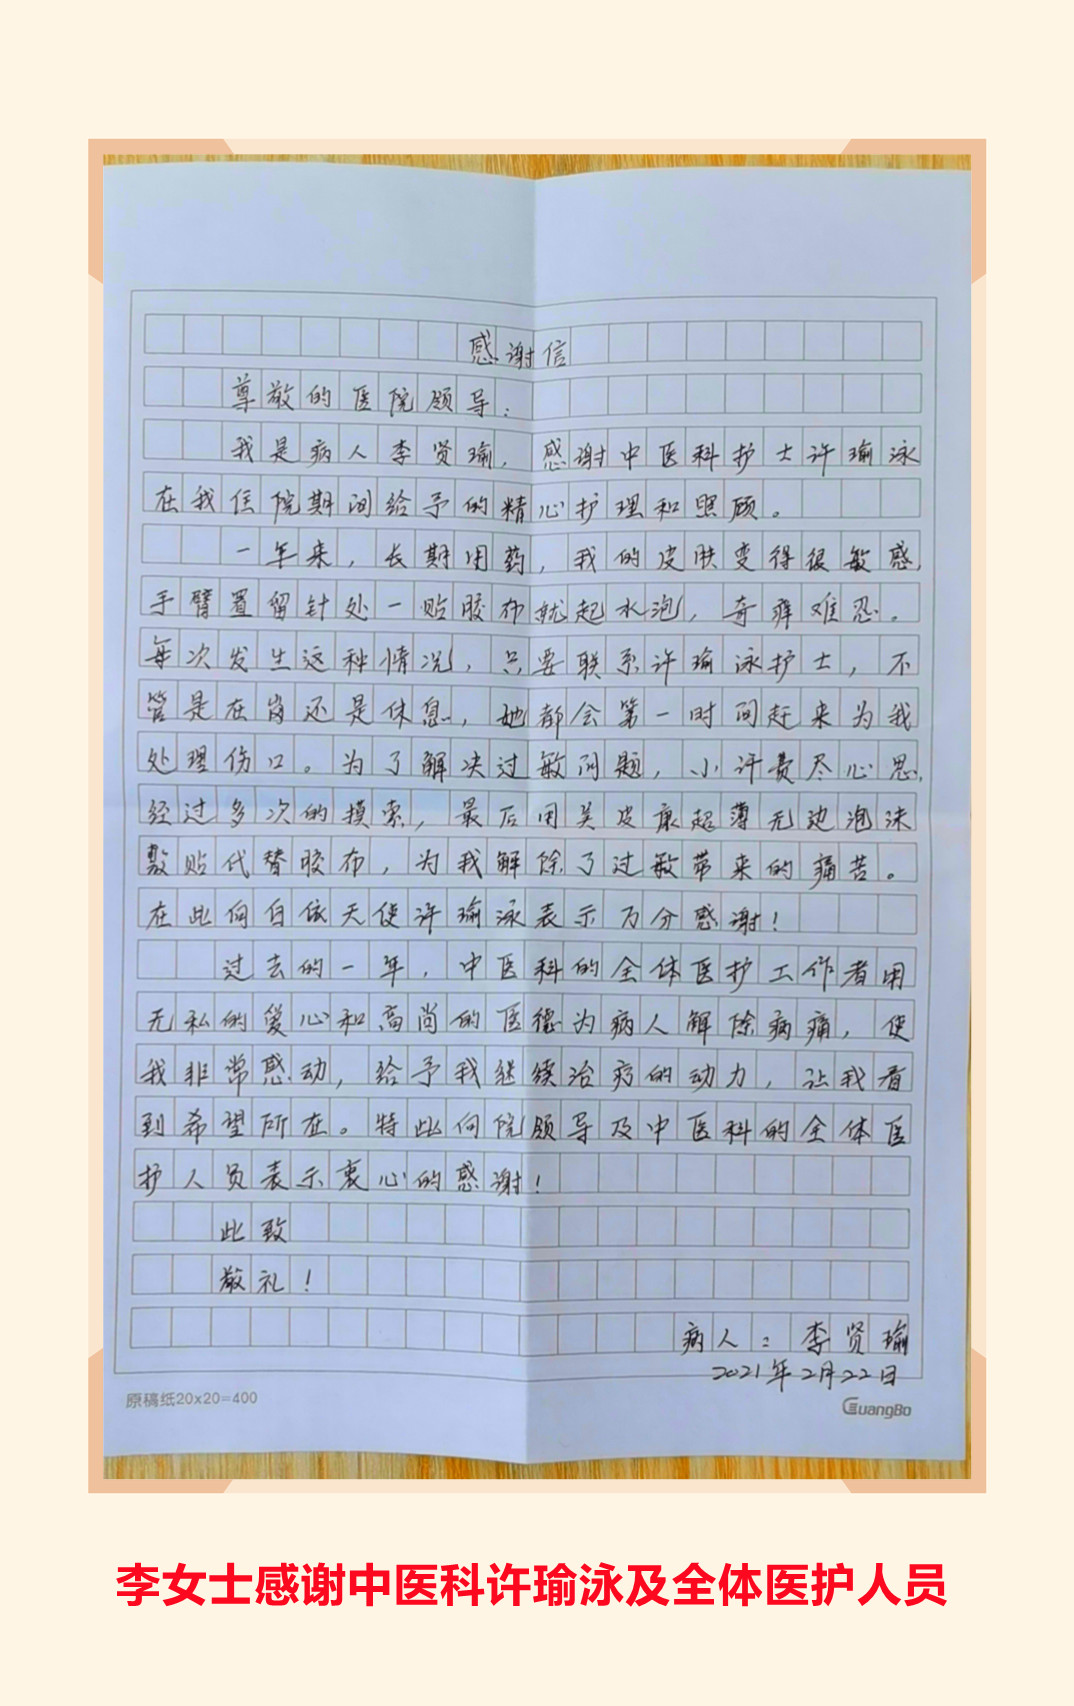 感谢信
尊敬的医院领导：
我是病人李贤瑜，感谢中医科护士许瑜泳
在我住院期间给予的精心护理和照顾。
一年来，长期用药，我的皮肤变得很敏感，
手臂置留针处一贴胶布就起水泡，奇痒难忍。
每次发生这种情况，只要联系许瑜泳护士，不
管是在岗还是休息，她都会第一时间赶来为我
处理伤口。为了解决过敏问题，小许费尽心思，
经过多次的摸索，最后用美皮康超薄无边泡沫
敷贴代替胶布，为我解除了过敏带来的痛苦。
在此向白依天使许瑜泳表示万分感谢！
过去的一年，中医科的全体医护工作者用
无私的爱心和高尚的医德为病人解除病痛，使
我非常感动，给予我继续治疗的动力，让我看
到希望所在。特此向院领导及中医科的全体医
护人员表示衷心的感谢！
此致
敬礼！
病人：李贤瑜
2021年2月22日
原稿纸20x20=400
GuangBo
李女士感谢中医科许瑜泳及全体医护人员